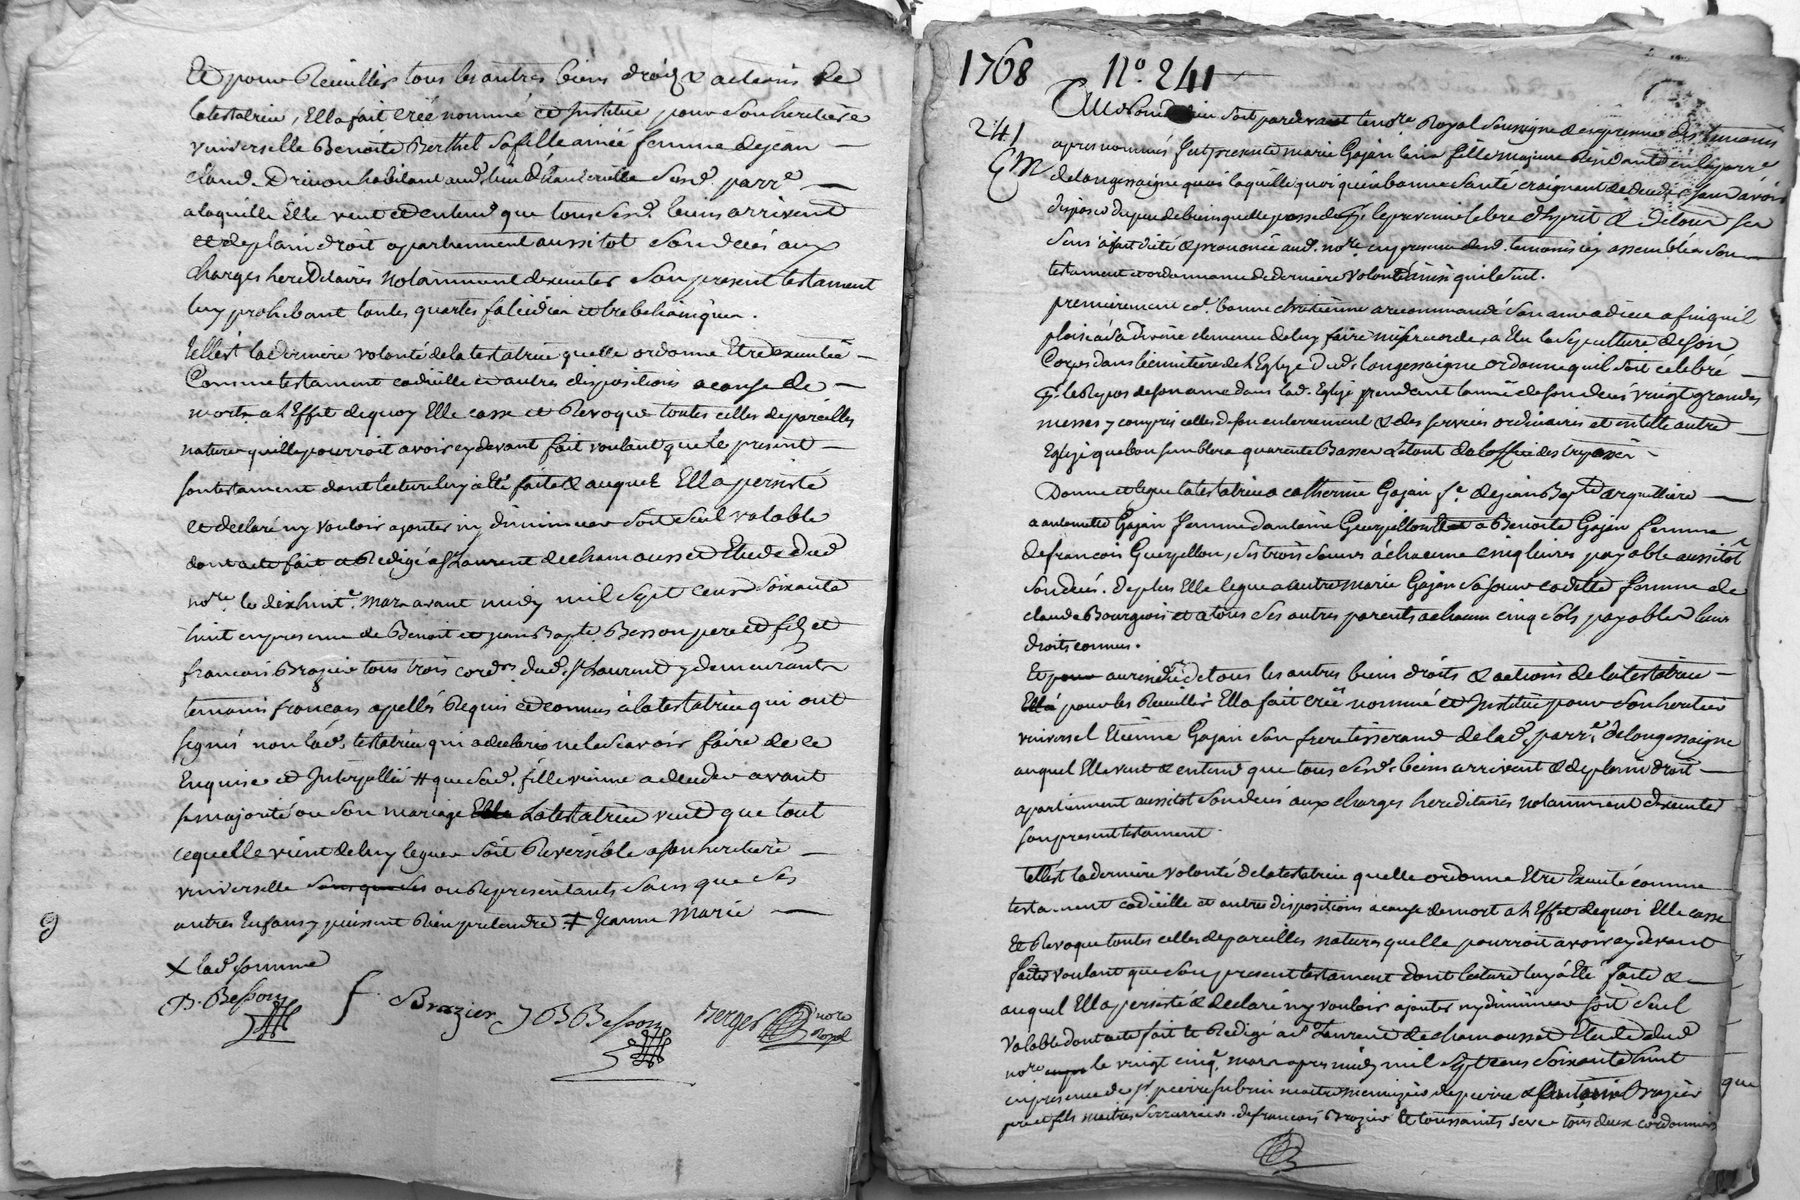 Et pour Reuillir tous les autres biens droits & actions de
latestatrice, Ella fait créé nommé et Institué pour son heritiere
universelle Benoite Berthet sa fille ainée femme de jean
claude Drivon habitant aud. lieu d'hauterville susd. parr.e
a laquelle Elle veut et entend que tous sesd. biens arrivent
et deplain droit apartiennent aussitot son deces aux
charges hereditaires notamment dexecuter son present testament
luy prohibant toutes quartes falcidie et trebelianique.
Telle est laderniere volonté delatestatrice quelle ordonne Etre executée
Comme testament codicille et autres dispositions a cause de
mort a l'Effet dequoy Elle casse et Revoque toutes celles depareilles
nature quelle pourroit avoir cy devant fait voulant que le present
son testament dont lecture luy a Eté faite & auquel Ella persisté
et declaré ny vouloir ajouter ny diminuer soit seul valable
dont acte fait et Redigé a St Laurent de chamousset Etude dud
no.re le dixhuit.e mars avant midy mil sept cent soixante
huit en presence de Benoit et jean Bapt.e Besson pere et fils et
francois Brazier tous trois cord.rs dud. St Laurent y demeurants
temoins francois apellés Requis et connus a la testatrice qui ont
signés non lad. testatrice qui a declaré ne le scavoir faire de ce
Enquise et Interpellée # que sad. fille vienne a deceder avant
sa majorité ou son mariage Elle Latestatrice veut que tout
cequelle vient de luy leguer soit Reversible a son heritiere
universelle sans que ses ou Representants sans que ses
autres Enfans y puissent Rien pretendre. ‡ jeanne Marie
X lad. somme
B. Besson f. Brazier J B Besson Berger no.re Royal
1768 N.o 241
241
pardevant le no.re Royal soussigné & en presence des temoins
apres nommés fut presente marie Gojon fille majeure Residante en la parr.e
de longessaigne quoi laquelle quoi quen bonne santé craignant de deceder sans avoir
disposé du peu de biens quelle possede
sens a fait dicté & prononcé aud. no.re en presence desd. temoins icy assemblés son
testament et ordonnance de derniere volonté ainsi quil suit.
premierement co.e bonne chretienne a recommandé son ame a dieu afin quil
plaise a sa divine clemence de luy faire misericorde, a Elu la sepulture de son
Corps dans le cimitiere de l'Eglise dud. longessaigne ordonne quil soit celebré
p.r le Repos de son ame dans lad. Eglise pendant l'année de son deces vingt grandes
messes y compris celles de son enterrement & des services ordinaires et en telle autre
Eglise que bon semblera quarente Basses Le tout de l'office des trepassés
Donne et legue la testatrice a catherine Gojon f.e de jean Bapt.e arquilliere
a antoinette Gojon femme dantoine Guerpillon et a Benoite Gojon femme
de francois Guerpillon, ses trois soeurs a chacune cinq livres payable aussitot
son deces. De plus Elle legue a autre marie Gojon sa soeur cadette femme de
claude Bourgeois et a tous ses autres parents a chacun cinq sols payables leurs
droits connus.
Et pour au residu de tous les autres biens droits & actions de la testatrice
Ella pour les Reuillir Ella fait créé nommé et Institué pour son heritier
universel Etienne Gojon son frere tisserand de lad. parr.e de longessaigne
auquel Elle veut & entend que tous sesd. biens arrivent & deplain droit
apartiennent aussitot son deces aux charges hereditaires notamment dexecuter
son present testament.
Telle est laderniere volonté de latestatrice quelle ordonne Etre Executé comme
testament codicille et autres dispositions a cause de mort a l'Effet dequoi Elle casse
Et Revoque toutes celles de pareilles natures quelle pourroit avoir cy devant
faites voulant que son present testament dont lecture luy a Eté faite &
auquel Ella persisté & declaré ny vouloir ajouter ny diminuer soit seul
valable dont acte fait et Redigé a St Laurent de chamousset Etude dud
no.re le vingt cinq mars apres midy mil sept cens soixante huit
en presence de s.r pierre maitre menuizier de pierre & Brazier
pere et fils maitres serruriers. de francois Brazier et toussaints tous deux cordonniers
que